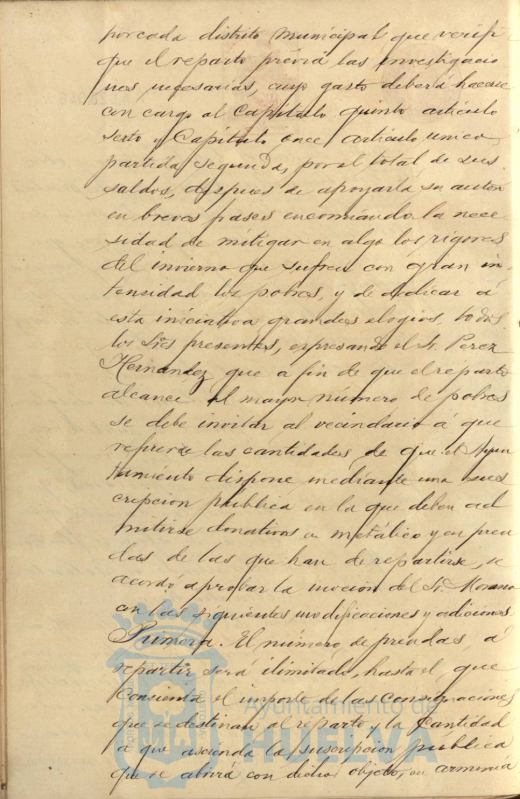 por cada distrito municipal que verifi
que el reparto previa las investigacio
nes necesarias, cuyo gasto deberá hacerse
con cargo al Capítulo quinto artículo
sexto y Capítulo once artículo unico
partida segunda, por el total de sus
saldos, despues de apoyarla su autor
en breves frases encomiando la nece
sidad de mitigar en algo los rigores
del invierno que sufren con gran in
tensidad los pobres, y de dedicar á
esta iniciativa grandes elogios, todos
los Sres presentes, expresando el Sr. Perez
Hernandez que a fin de que el reparto
alcance al mayor número de pobres
se debe invitar al vecindario á que
refuerce las cantidades de que el Ayun
tamiento dispone mediante una sus
cripcion publica en la que deben ad
mitirse donativos en metálico y en pren
das de las que han de repartirse, se
acordó aprobar la mocion del Sr. Moreno
con las siguientes modificaciones y adiciones
Primera. El número de prendas, á
repartir será ilimitado, hasta el que
consienta el importe de las consignaciones
que se destinan al reparto y la cantidad
a que ascienda la suscripcion publica
que se abrirá con dicho objeto, en armonia
Ayuntamiento de
HUELVA